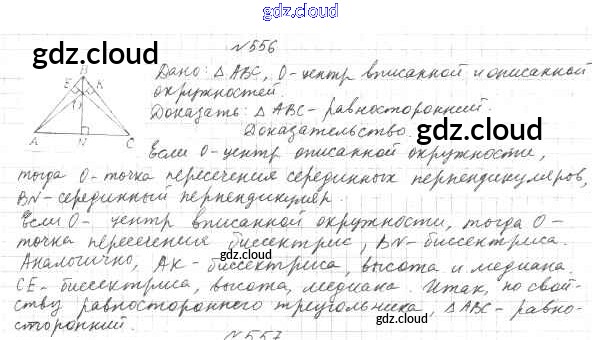 gdz.cloud
N 556
gdz.cloud
gdz.cloud
Дано: △ABC, O-центр вписанной и описанной
окружностей.
Доказать: △ABC- равносторонний.
Доказательство.
B
E K
O
A N C
gdz.cloud
Если O-центр описанной окружности,
тогда O-точка пересечения серединных перпендикуляров,
BN-серединный перпендикуляр.
Если O- центр вписанной окружности, тогда O-
точка пересечения биссектрис, BN-биссектриса.
gdz.cloud
Аналогично, AK- биссектриса, высота и медиана.
CE- биссектриса, высота, медиана. Итак, по свой-
ству равностороннего треугольника, △ABC- равно-
сторонний.
gdz.cloud
N 557